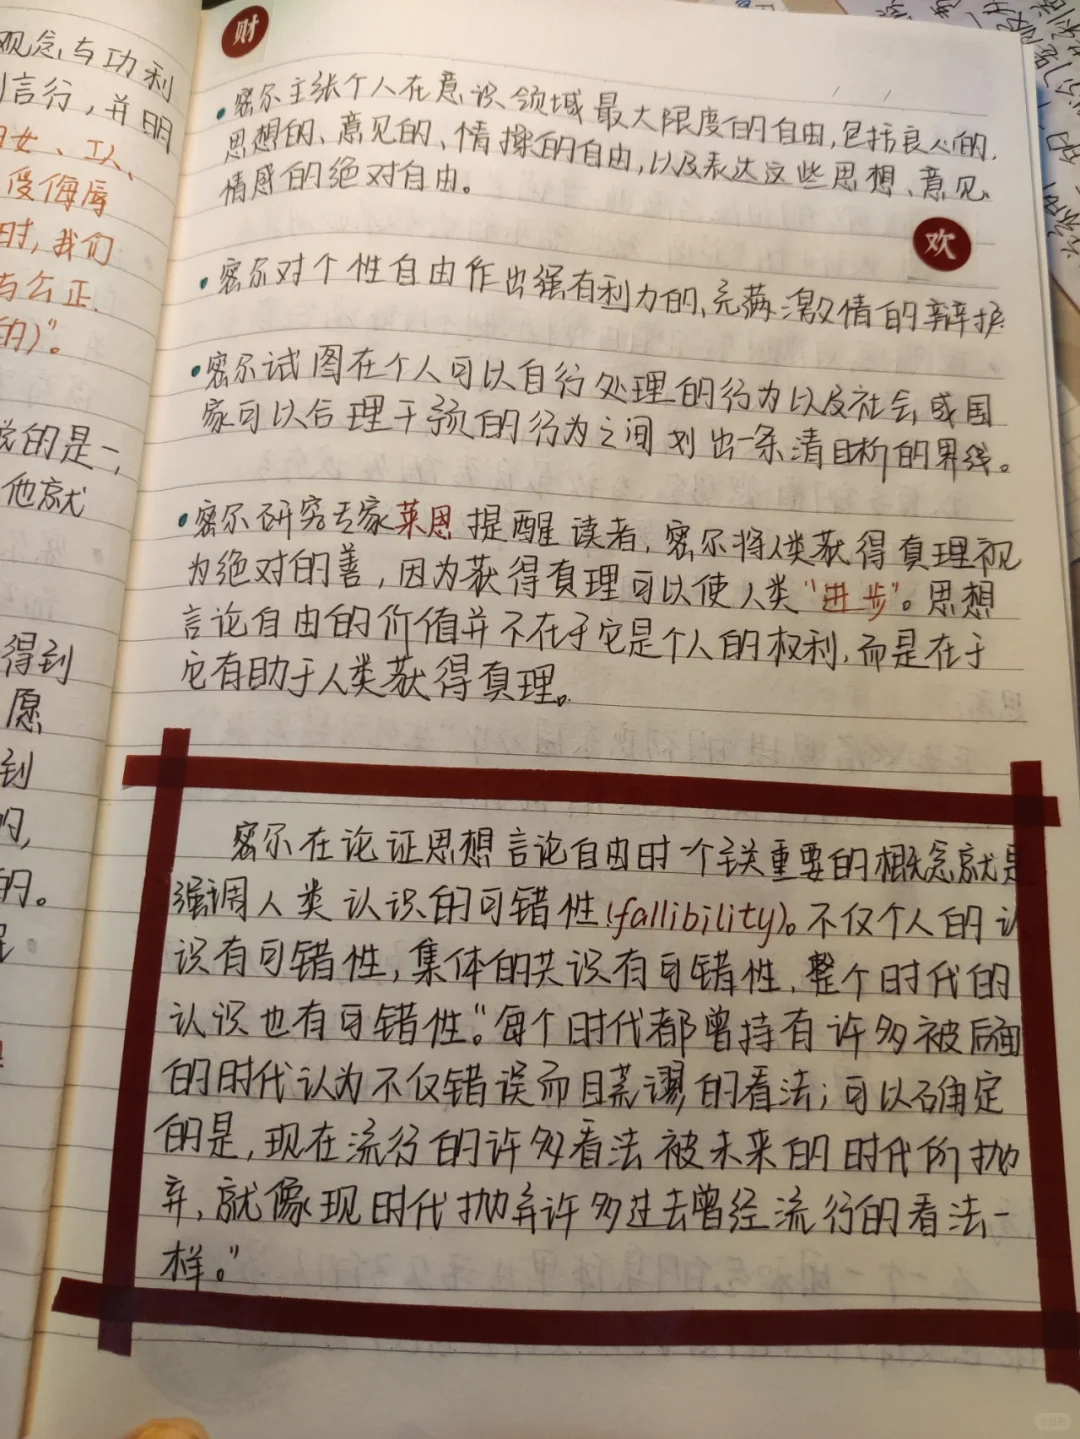 观念与功利
言行，并明
女、工人、
受侮辱
时，我们
与公正
的)”。
说的是一，
他就
得到
愿
到
的，
的。
财
• 密尔主张个人在意识领域最大限度的自由，包括良心的、
思想的、意见的、情操的自由，以及表达这些思想、意见、
情感的绝对自由。
欢
• 密尔对个性自由作出强有利力的、充满激情的辩护
• 密尔试图在个人可以自行处理的行为以及社会或国
家可以合理干预的行为之间划出一条清晰的界线。
• 密尔研究专家莱恩提醒读者，密尔将人类获得真理视
为绝对的善，因为获得真理可以使人类“进步”。思想
言论自由的价值并不在于它是个人的权利，而是在于
它有助于人类获得真理。
密尔在论证思想言论自由时一个至关重要的概念就是
强调人类认识的可错性(fallibility)。不仅个人的认
识有可错性，集体的共识有可错性，整个时代的
认识也有可错性。“每个时代都曾持有许多被后面
的时代认为不仅错误而且荒谬的看法；可以确定
的是，现在流行的许多看法被未来的时代所抛
弃，就像现时代抛弃许多过去曾经流行的看法一
样。”
小红书